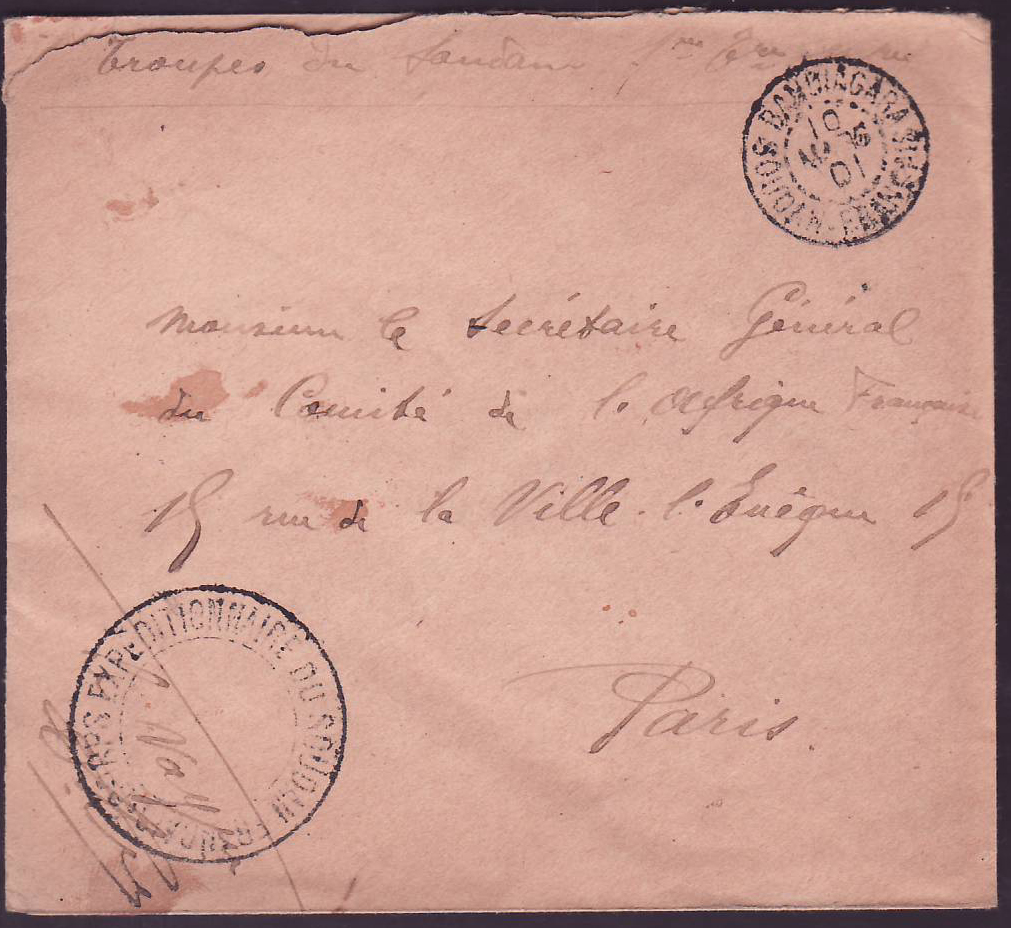 Troupes du Soudan 1re
BANDIAGARA
SOUDAN-FRANÇAIS
10
01
Monsieur le Secrétaire Général
du Comité de l'Afrique Française
15 rue de la Ville l'Évêque 15
Paris.
CORPS EXPEDITIONNAIRE DU SOUDAN FRANÇAIS